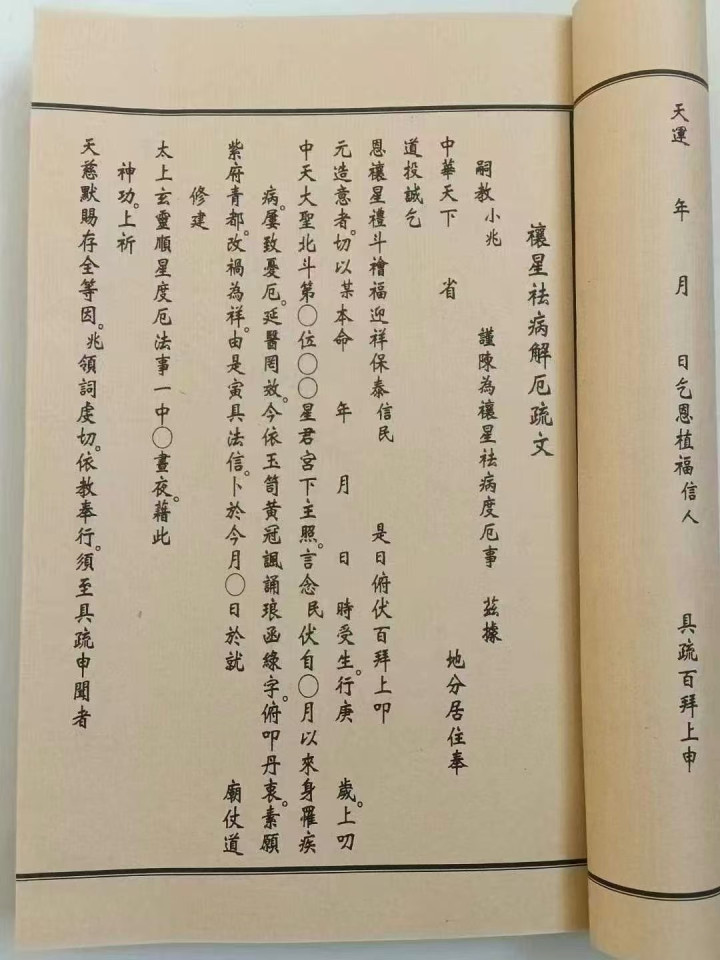 天運 年 月 日乞恩植福信人 具疏百拜上申
禳星祛病解厄疏文
嗣教小兆 謹陳為禳星祛病度厄事 茲據
中華天下 省 地分居住奉
道投誠乞
恩禳星禮斗禬福迎祥保泰信民 是日俯伏百拜上叩
元造意者。切以某本命 年 月 日 時受生。行庚 歲。上叨
中天大聖北斗第〇位〇〇星君宮下主照。言念民伏自〇月以來身罹疾
病。屢致憂厄。延醫罔效。今依玉笥黃冠諷誦琅函綠字。俯叩丹衷。素願
紫府青都。改禍為祥。由是寅具法信。卜於今月〇日於就 廟仗道
修建
太上玄靈順星度厄法事一中〇晝夜。藉此
神功。上祈
天慈默賜存全等因。兆領詞虔切。依教奉行。須至具疏申聞者